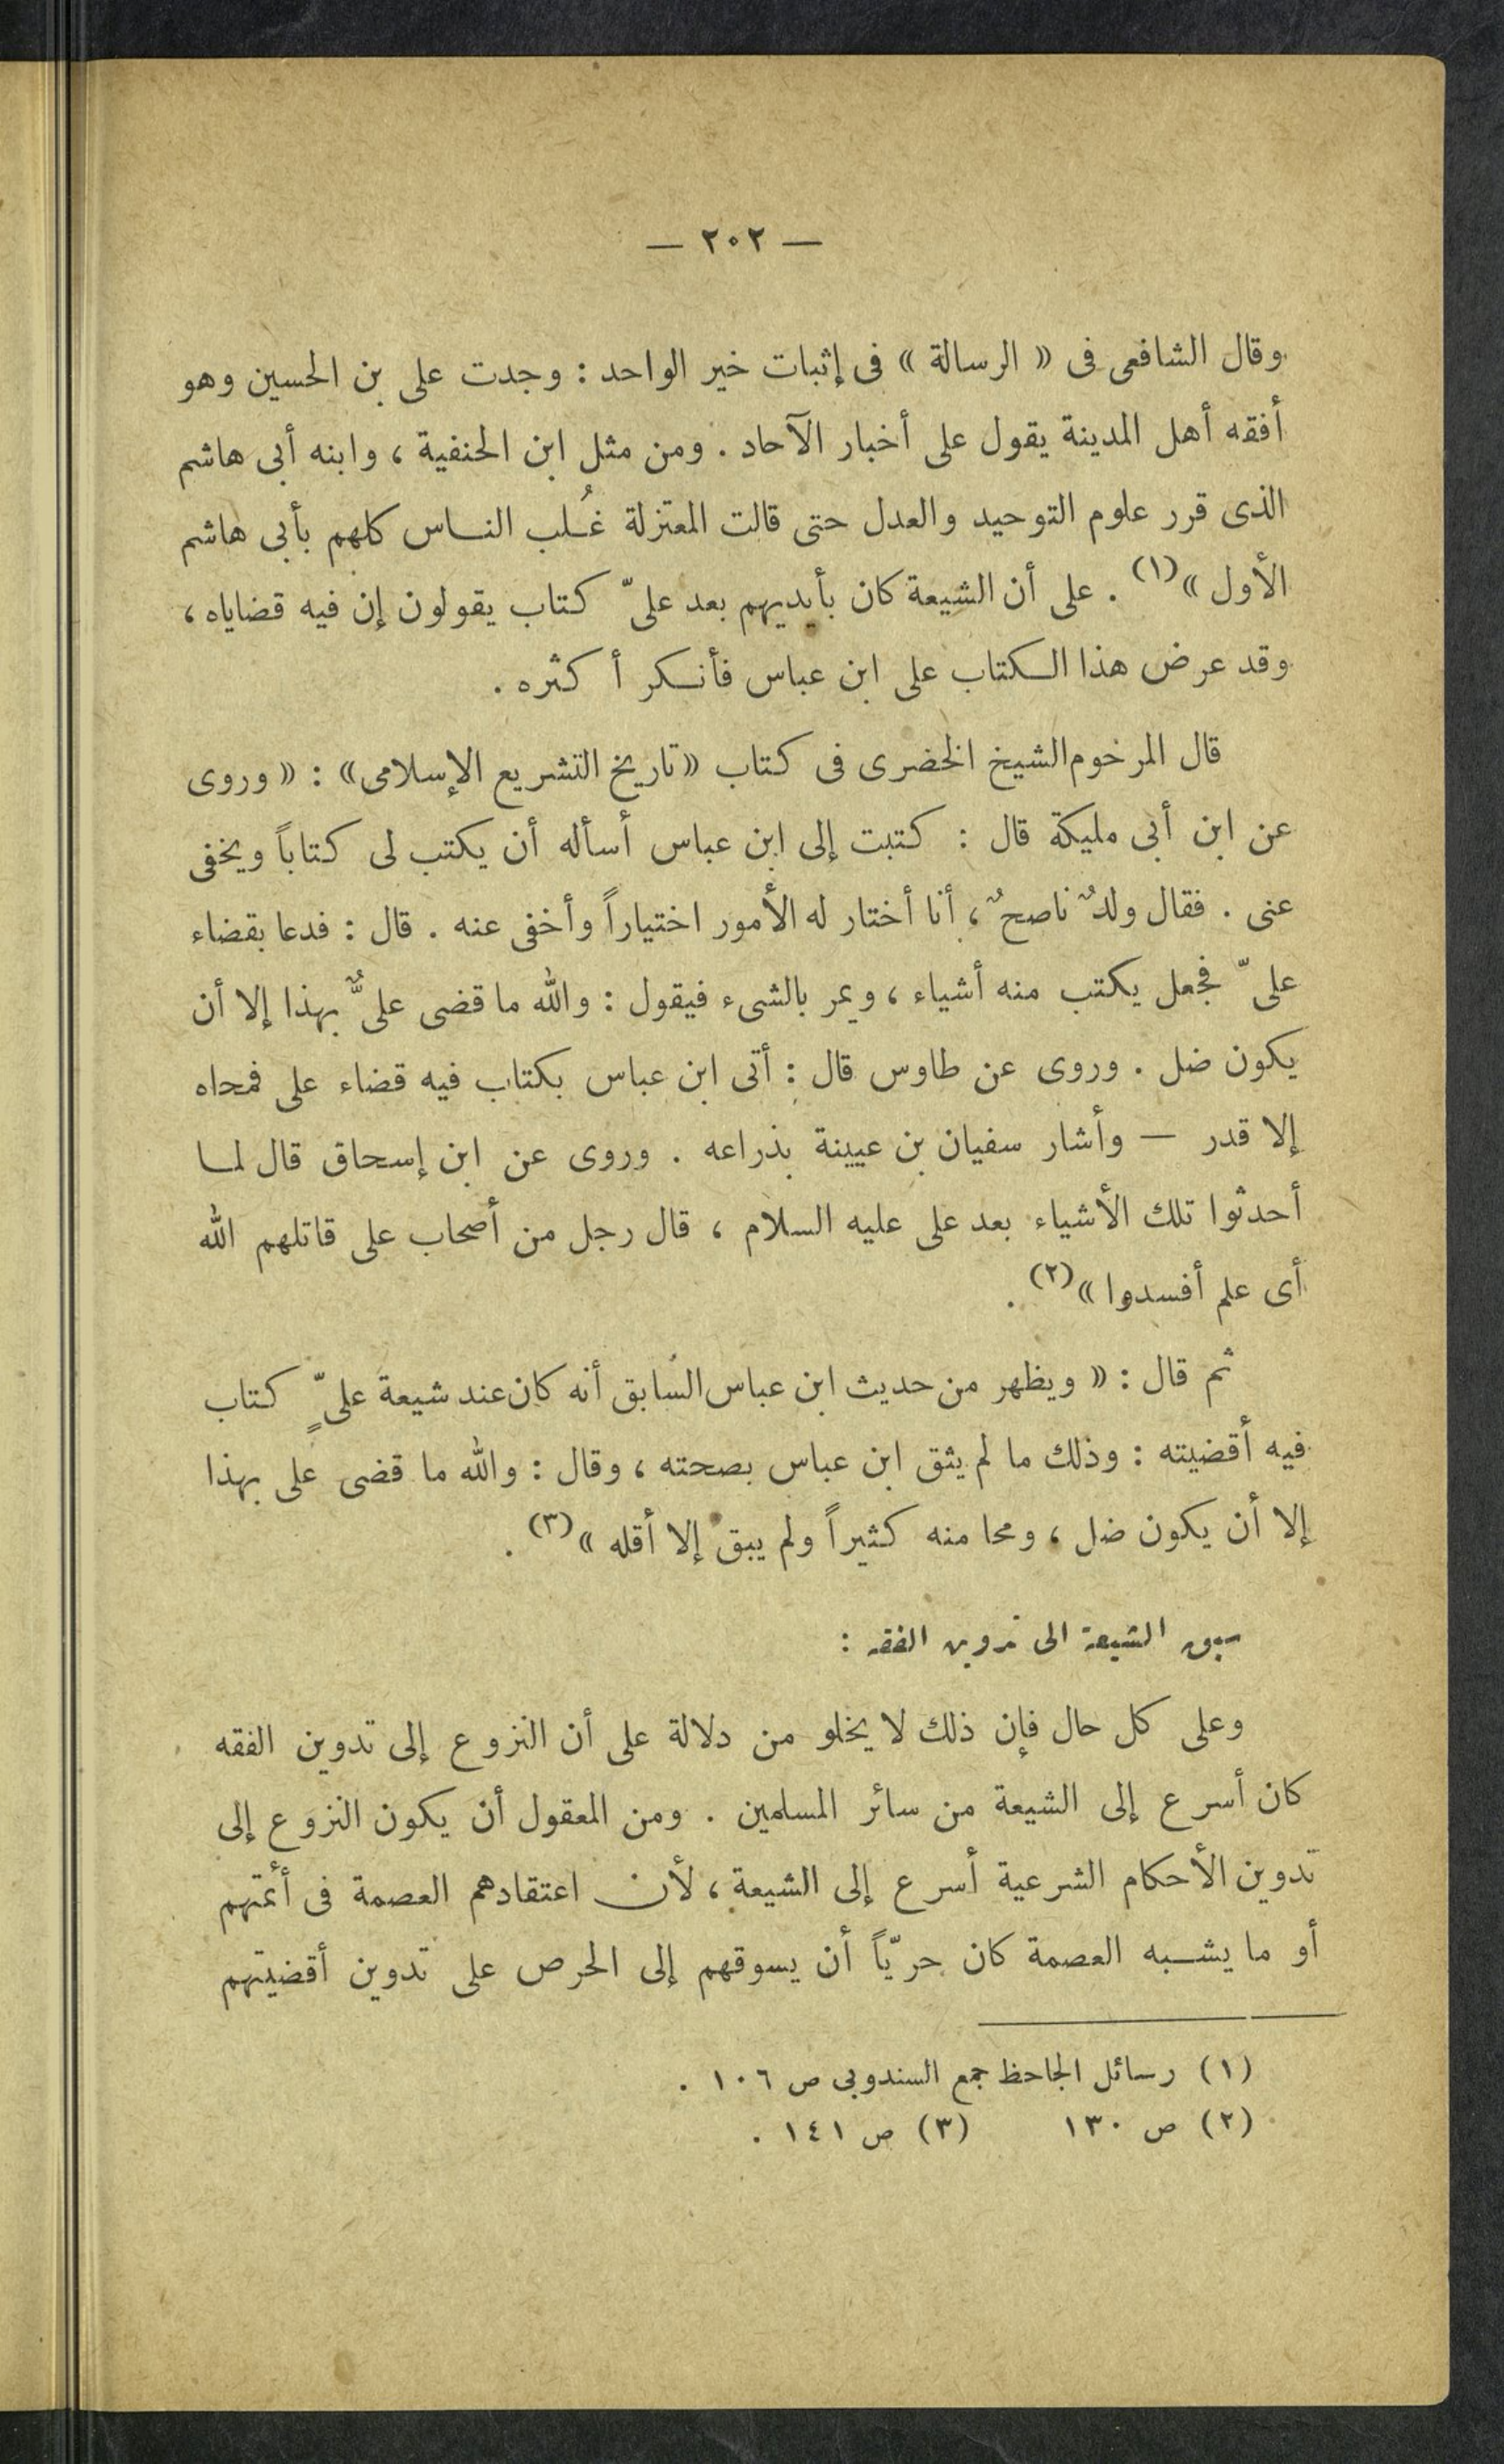 — ٢٠٢ —
وقال الشافعى فى « الرسالة » فى إثبات خير الواحد : وجدت على بن الحسين وهو
أفقه أهل المدينة يقول على أخبار الآحاد . ومن مثل ابن الحنفية ، وابنه أبى هاشم
الذى قرر علوم التوحيد والعدل حتى قالت المعتزلة غُلب الناس كلهم بأبى هاشم
الأول »(١) . على أن الشيعة كان بأيديهم بعد علىّ كتاب يقولون إن فيه قضاياه ،
وقد عرض هذا الكتاب على ابن عباس فأنكر أكثره .
قال المرخوم الشيخ الخضرى فى كتاب « تاريخ التشريع الإسلامى » : « وروى
عن ابن أبى مليكة قال : كتبت إلى ابن عباس أسأله أن يكتب لى كتاباً ويخفى
عنى . فقال ولدٌ ناصحٌ ، أنا أختار له الأمور اختياراً وأخفى عنه . قال : فدعا بقضاء
علىّ فجعل يكتب منه أشياء ، ويمر بالشىء فيقول : والله ما قضى علىٌّ بهذا إلا أن
يكون ضل . وروى عن طاوس قال : أتى ابن عباس بكتاب فيه قضاء على فمحاه
إلا قدر — وأشار سفيان بن عيينة بذراعه . وروى عن ابن إسحاق قال لما
أحدثوا تلك الأشياء بعد على عليه السلام ، قال رجل من أصحاب على قاتلهم الله
أى علم أفسدوا »(٢) .
ثم قال : « ويظهر من حديث ابن عباس السابق أنه كان عند شيعة علىٍّ كتاب
فيه أقضيته : وذلك ما لم يثق ابن عباس بصحته ، وقال : والله ما قضى على بهذا
إلا أن يكون ضل ، ومحا منه كثيراً ولم يبق إلا أقله »(٣) .
سبق الشيعة الى تدوين الفقه :
وعلى كل حال فإن ذلك لا يخلو من دلالة على أن النزوع إلى تدوين الفقه
كان أسرع إلى الشيعة من سائر المسلمين . ومن المعقول أن يكون النزوع إلى
تدوين الأحكام الشرعية أسرع إلى الشيعة ، لأن اعتقادهم العصمة فى أئمتهم
أو ما يشبه العصمة كان حريّاً أن يسوقهم إلى الحرص على تدوين أقضيتهم
(١) رسائل الجاحظ جمع السندوبى ص ١٠٦ .
(٢) ص ١٣٠ (٣) ص ١٤١ .